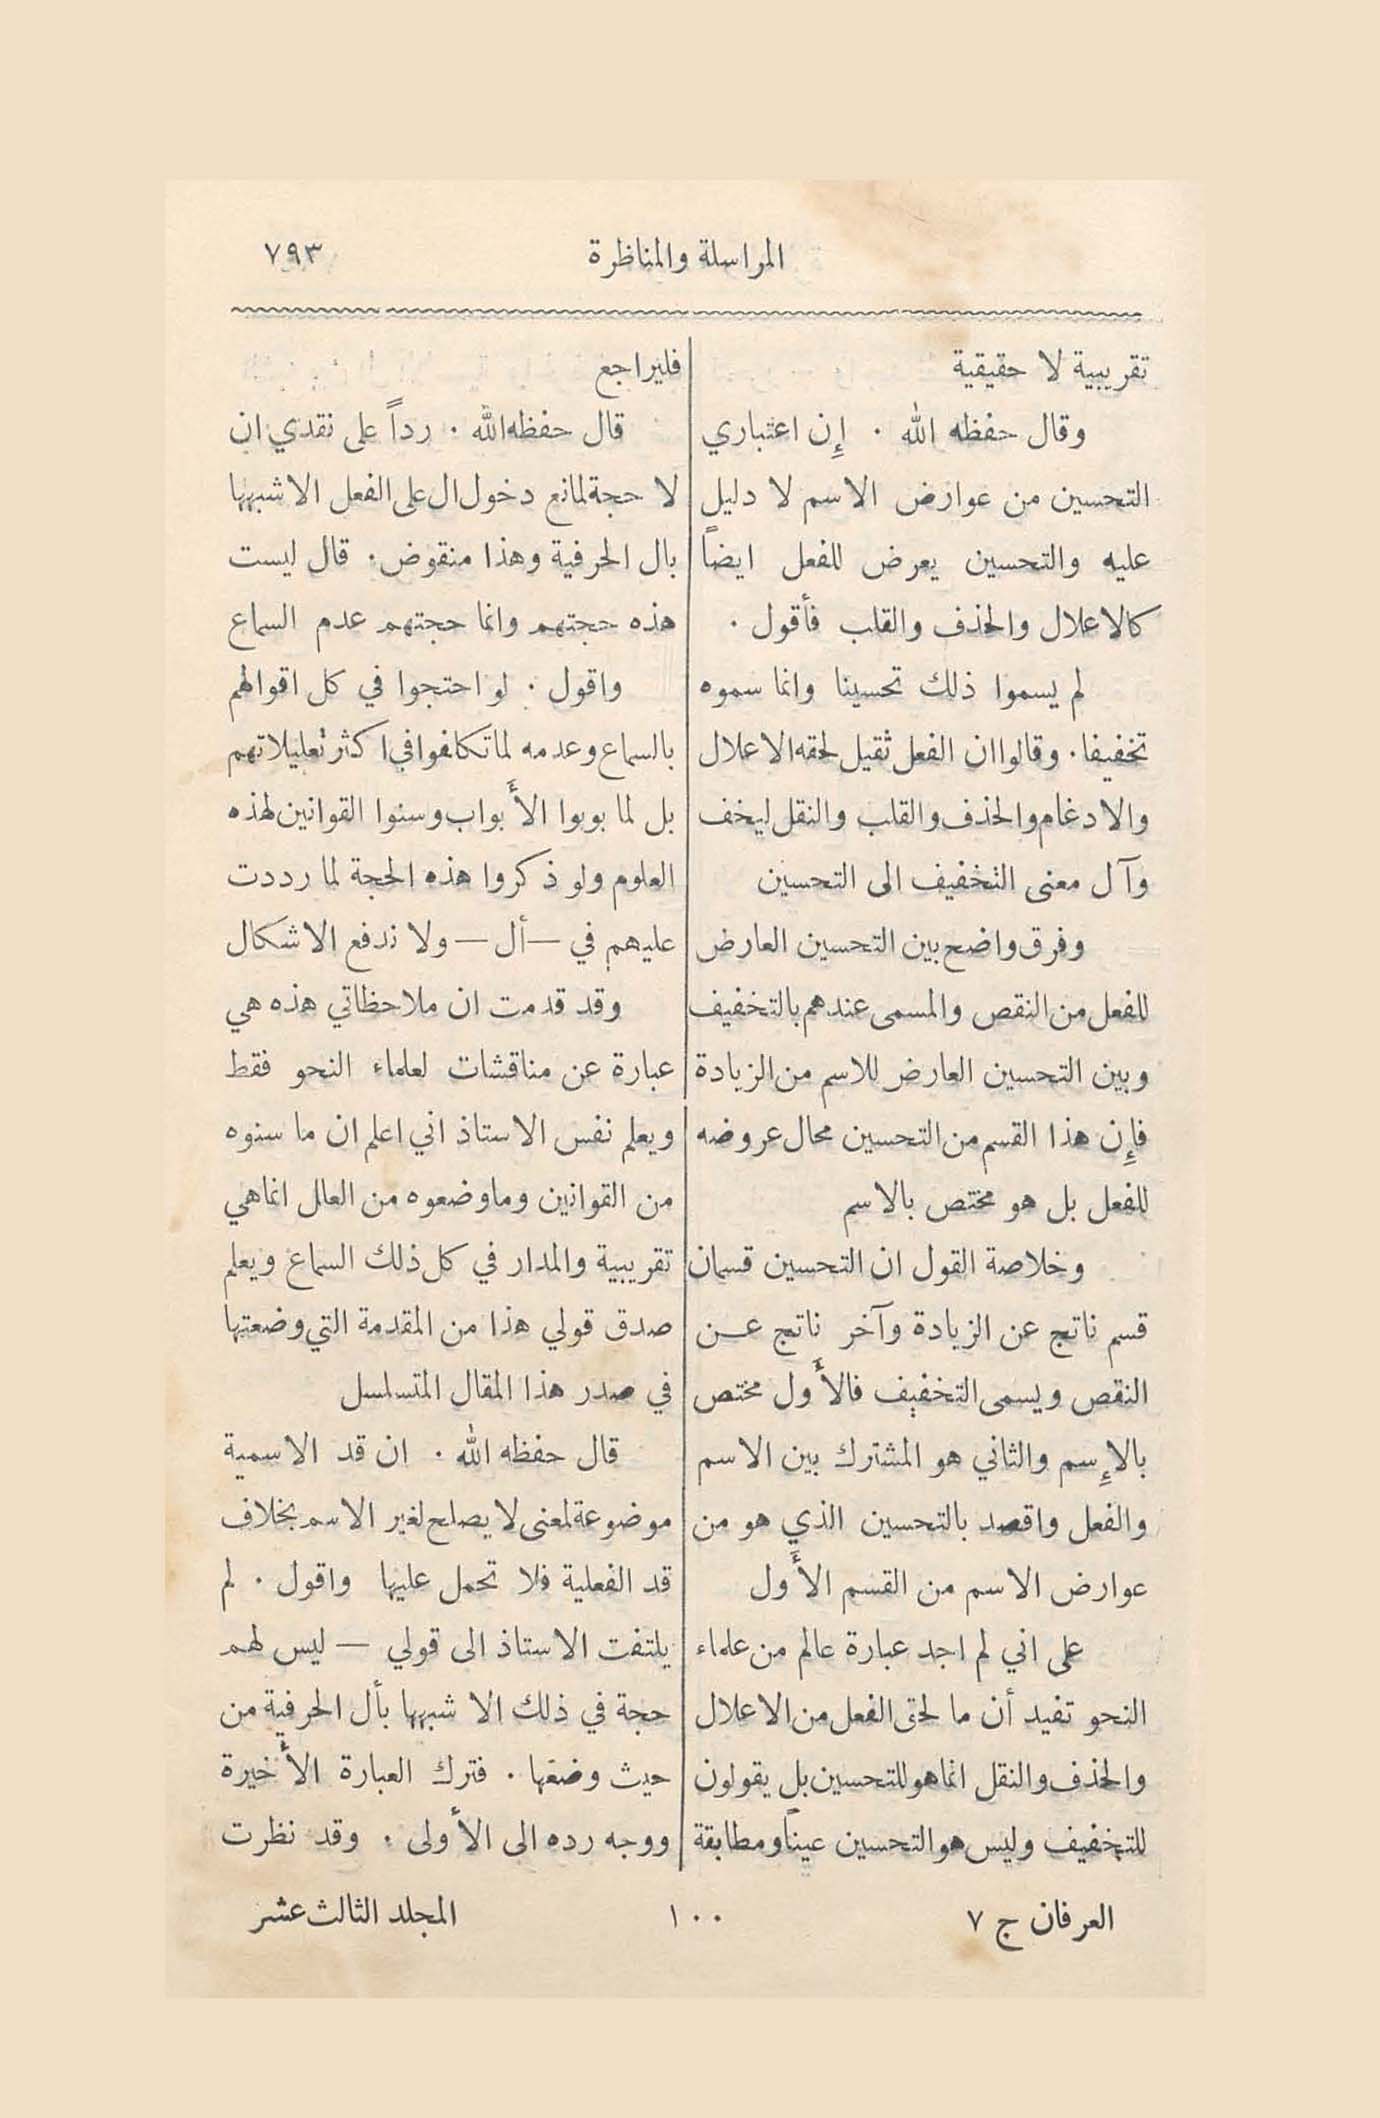 المراسلة والمناظرة
٧٩٣
تقريبية لا حقيقية
وقال حفظه الله . إِن اعتباري
التحسين من عوارض الاسم لا دليل
عليه والتحسين يعرض للفعل ايضاً
كالاعلال والحذف والقلب فأقول .
لم يسموا ذلك تحسينا وانما سموه
تخفيفا . وقالوا ان الفعل ثقيل لحقه الاعلال
والادغام والحذف والقلب والنقل ليخف
وآل معنى التخفيف الى التحسين
وفرق واضح بين التحسين العارض
للفعل من النقص والمسمى عندهم بالتخفيف
وبين التحسين العارض للاسم من الزيادة
فإِن هذا القسم من التحسين محال عروضه
للفعل بل هو مختص بالاسم
وخلاصة القول ان التحسين قسمان
قسم ناتج عن الزيادة وآخر ناتج عن
النقص ويسمى التخفيف فالأَول مختص
بالإِسم والثاني هو المشترك بين الاسم
والفعل واقصد بالتحسين الذي هو من
عوارض الاسم من القسم الأَول
على اني لم اجد عبارة عالم من علماء
النحو تفيد أن ما لحق الفعل من الاعلال
والحذف والنقل انما هو للتحسين بل يقولون
للتخفيف وليس هو التحسين عيناً ومطابقة
فليراجع
قال حفظه الله . رداً على نقدي ان
لا حجة لمانع دخول ال على الفعل الا شبهها
بال الحرفية وهذا منقوض . قال ليست
هذه حجتهم وانما حجتهم عدم السماع
واقول . لو احتجوا في كل اقوالهم
بالسماع وعدمه لما تكلفوا في اكثر تعليلاتهم
بل لما بوبوا الأَبواب وسنوا القوانين لهذه
العلوم ولو ذكروا هذه الحجة لما رددت
عليهم في — أل — ولا ندفع الاشكال
وقد قدمت ان ملاحظاتي هذه هي
عبارة عن مناقشات لعلماء النحو فقط
ويعلم نفس الاستاذ اني اعلم ان ما سنوه
من القوانين وما وضعوه من العلل انما هي
تقريبية والمدار في كل ذلك السماع ويعلم
صدق قولي هذا من المقدمة التي وضعتها
في صدر هذا المقال المتسلسل
قال حفظه الله . ان قد الاسمية
موضوعة لمعنى لا يصلح لغير الاسم بخلاف
قد الفعلية فلا تحمل عليها واقول . لم
يلتفت الاستاذ الى قولي — ليس لهم
حجة في ذلك الا شبهها بأل الحرفية من
حيث وضعها . فترك العبارة الأَخيرة
ووجه رده الى الأَولى . وقد نظرت
العرفان ج ٧
١٠٠
المجلد الثالث عشر